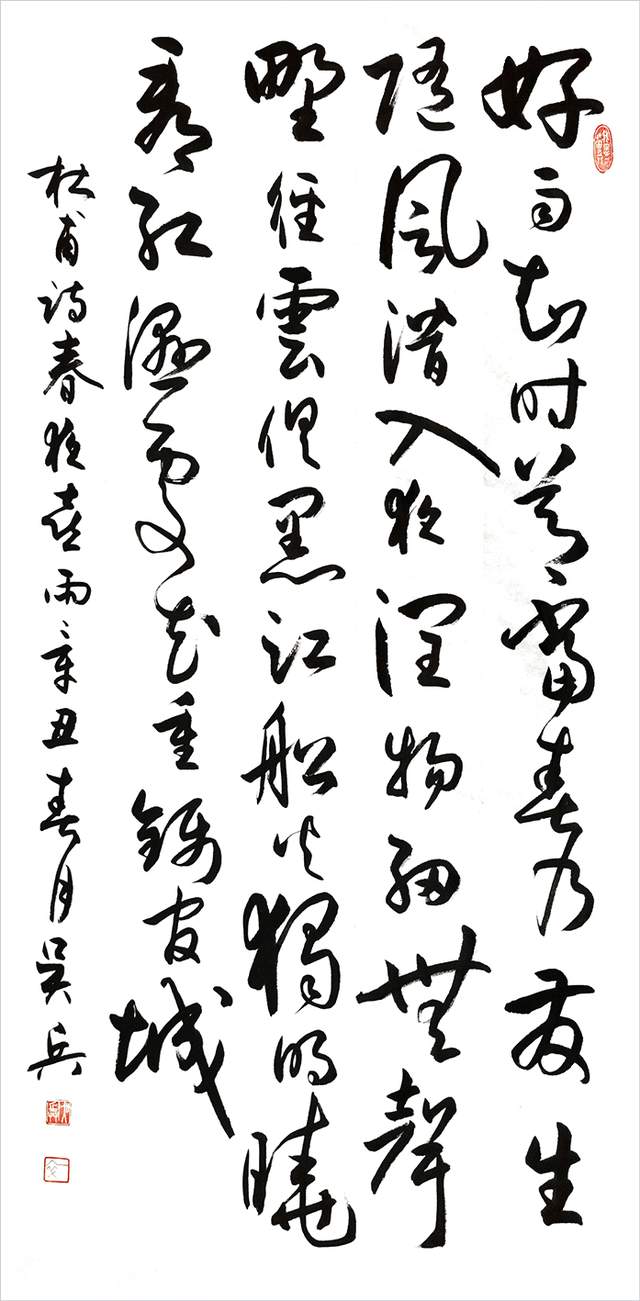 好雨知时节当春乃发生
随风潜入夜润物细無聲
野径雲俱黑江船火独明曉
看红湿处花重锦官城
杜甫诗春夜喜雨辛丑春月吴兵